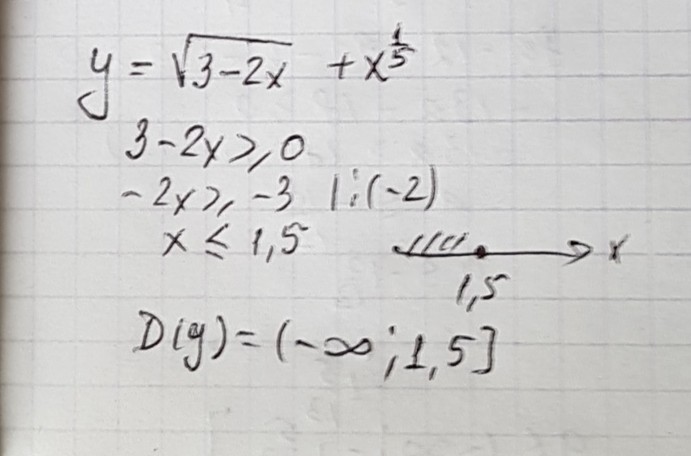 y = √3-2x + x^1/5
3-2x ≥ 0
-2x ≥ -3 |:(-2)
x ≤ 1,5 x
1,5
D(y) = (-∞; 1,5]